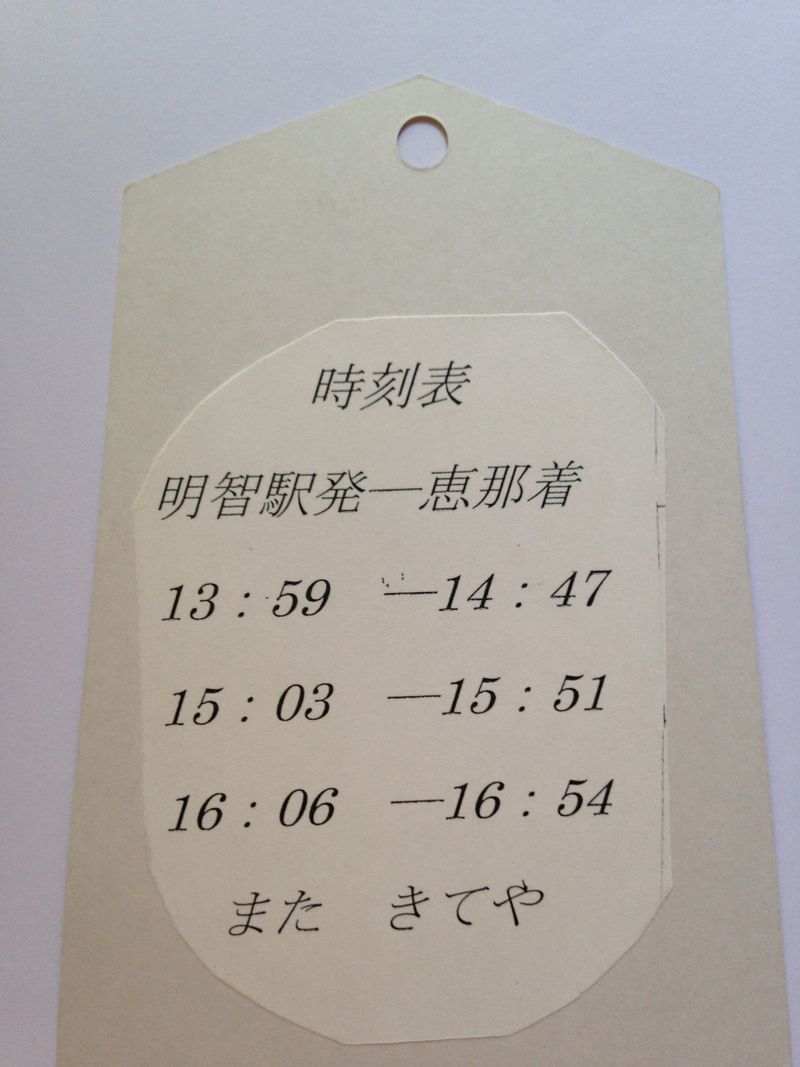 時刻表
明智駅発―恵那着
13：59　―14：47
15：03　―15：51
16：06　―16：54
また　きてや